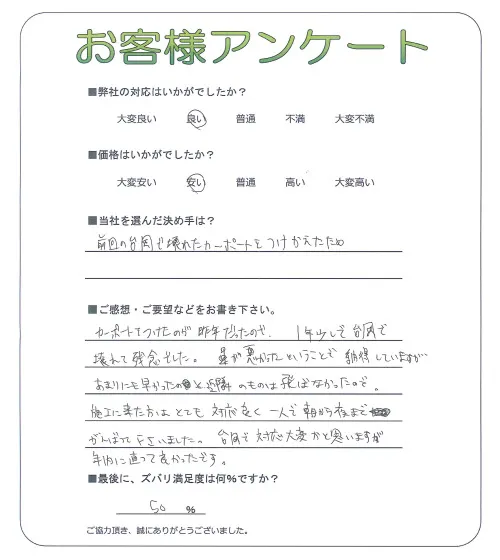 お客様アンケート
■弊社の対応はいかがでしたか？
大変良い 良い 普通 不満 大変不満
■価格はいかがでしたか？
大変安い 安い 普通 高い 大変高い
■当社を選んだ決め手は？
前回の台風で壊れたカーポートをつけかえたため
■ご感想・ご要望などをお書き下さい。
カーポートをつけたのが昨年だったので、1年少しで台風で
壊れて残念でした。運が悪かったということで納得していますが
あまりにも早かったのと近隣のものは飛ばなかったので。
施工に来た方はとても対応良く一人で朝から夜まで
がんばって下さいました。台風で対応大変かと思いますが
年内に直って良かったです。
■最後に、ズバリ満足度は何%ですか？
50 %
ご協力頂き、誠にありがとうございました。